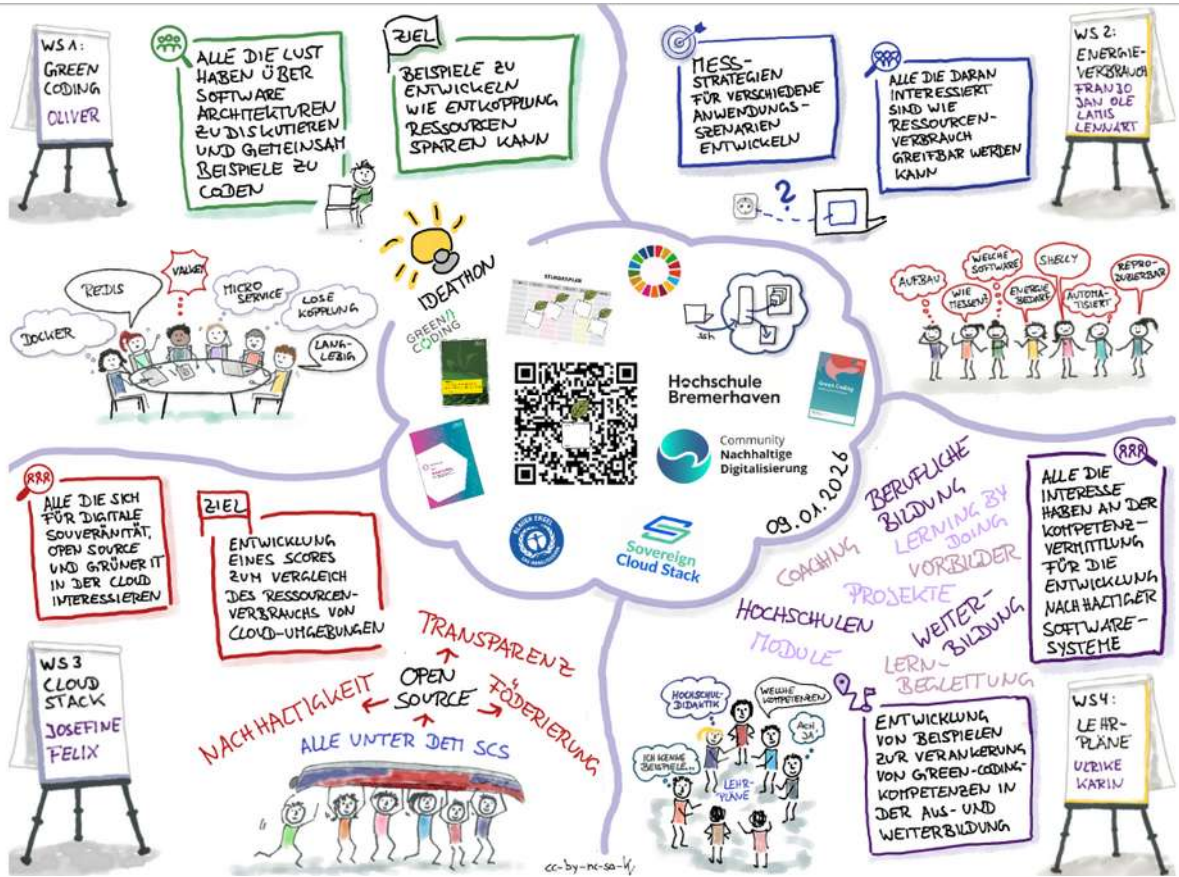 WS 1:
GREEN
CODING
OLIVER
ALLE DIE LUST
HABEN ÜBER
SOFTWARE
ARCHITEKTUREN
ZU DISKUTIEREN
UND GEMEINSAM
BEISPIELE ZU
CODEN
ZIEL
BEISPIELE ZU
ENTWICKELN
WIE ENTKOPPLUNG
RESSOURCEN
SPAREN KANN
MESS-
STRATEGIEN
FÜR VERSCHIEDENE
ANWENDUNGS-
SZENARIEN
ENTWICKELN
ALLE DIE DARAN
INTERESSIERT
SIND WIE
RESSOURCEN-
VERBRAUCH
GREIFBAR WERDEN
KANN
WS 2:
ENERGIE-
VERBRAUCH
FRANDO
JAN OLE
LAMIS
LENNART
?
DOCKER
REDIS
VALKEY
MICRO
SERVICE
LOSE
KOPPLUNG
LANG-
LEBIG
IDEATHON
GREEN
CODING
STUNDENPLAN
ssh
Hochschule
Bremerhaven
Green Coding
Community
Nachhaltige
Digitalisierung
BLAUER ENGEL
DAS UMWELTZEICHEN
Sovereign
Cloud Stack
09.01.2026
AUFBAU
WIE
MESSEN?
WELCHE
SOFTWARE?
ENERGIE
BEDARF
SHELLY
AUTOMA-
TISIERT
REPRO-
DUZIERBAR
ALLE DIE SICH
FÜR DIGITALE
SOUVERÄNITÄT,
OPEN SOURCE
UND GRÜNER IT
IN DER CLOUD
INTERESSIEREN
ZIEL
ENTWICKLUNG
EINES SCORES
ZUM VERGLEICH
DES RESSOURCEN-
VERBRAUCHS VON
CLOUD-UMGEBUNGEN
WS 3
CLOUD
STACK
JOSEFINE
FELIX
TRANSPARENZ
NACHHALTIGKEIT
OPEN
SOURCE
FÖDERIERUNG
ALLE UNTER DEM SCS
cc-by-nc-sa-
BERUFLICHE
BILDUNG
LERNING BY
DOING
COACHING
VORBILDER
PROJEKTE
HOCHSCHULEN
WEITER-
BILDUNG
MODULE
LERN-
BEGLEITUNG
ALLE DIE
INTERESSE
HABEN AN DER
KOMPETENZ-
VERMITTLUNG
FÜR DIE
ENTWICKLUNG
NACHHALTIGER
SOFTWARE-
SYSTEME
HOCHSCHUL-
DIDAKTIK
WELCHE
KOMPETENZEN
ACH
JA
ICH KENNE
BEISPIELE..
LEHR-
PLÄNE
ENTWICKLUNG
VON BEISPIELEN
ZUR VERANKERUNG
VON GREEN-CODING-
KOMPETENZEN IN
DER AUS- UND
WEITERBILDUNG
WS4:
LEHR-
PLÄNE
ULRIKE
KARIN